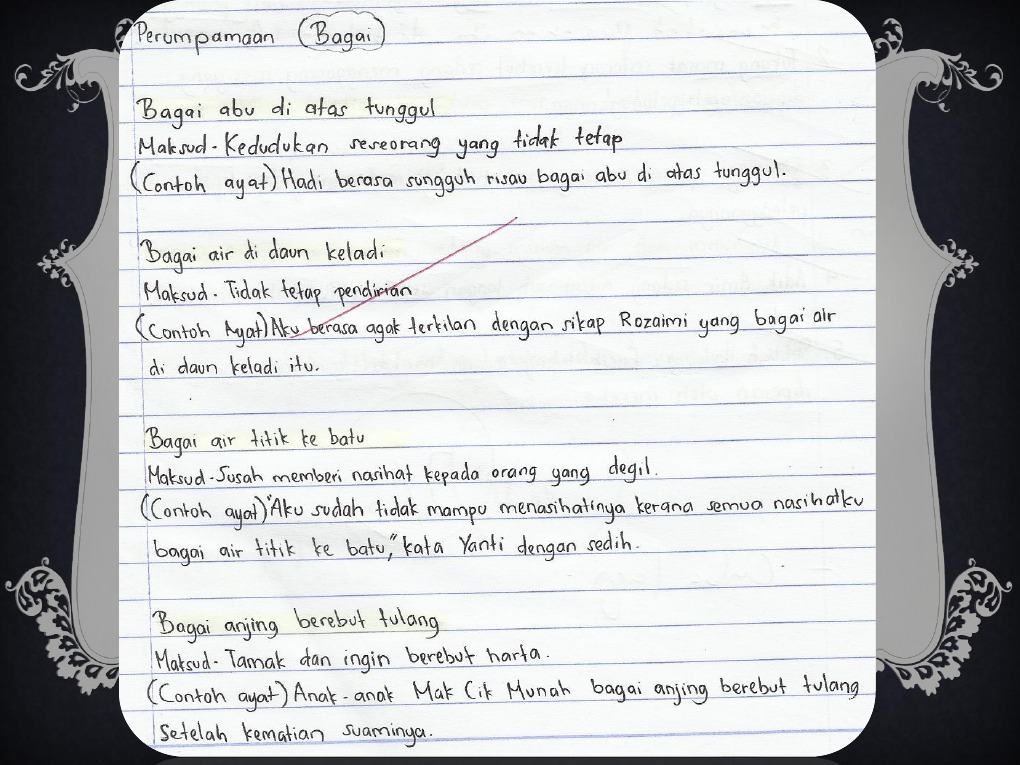 Perumpamaan Bagai
Bagai abu di atas tunggul
Maksud - Kedudukan seseorang yang tidak tetap
(Contoh ayat) Hadi berasa sungguh risau bagai abu di atas tunggul.
Bagai air di daun keladi
Maksud - Tidak tetap pendirian
(Contoh Ayat) Aku berasa agak terkilan dengan sikap Rozaimi yang bagai air
di daun keladi itu.
Bagai air titik ke batu
Maksud - Susah memberi nasihat kepada orang yang degil.
(Contoh ayat) "Aku sudah tidak mampu menasihatinya kerana semua nasihatku
bagai air titik ke batu," kata Yanti dengan sedih.
Bagai anjing berebut tulang
Maksud - Tamak dan ingin berebut harta.
(Contoh ayat) Anak-anak Mak Cik Munah bagai anjing berebut tulang
setelah kematian suaminya.